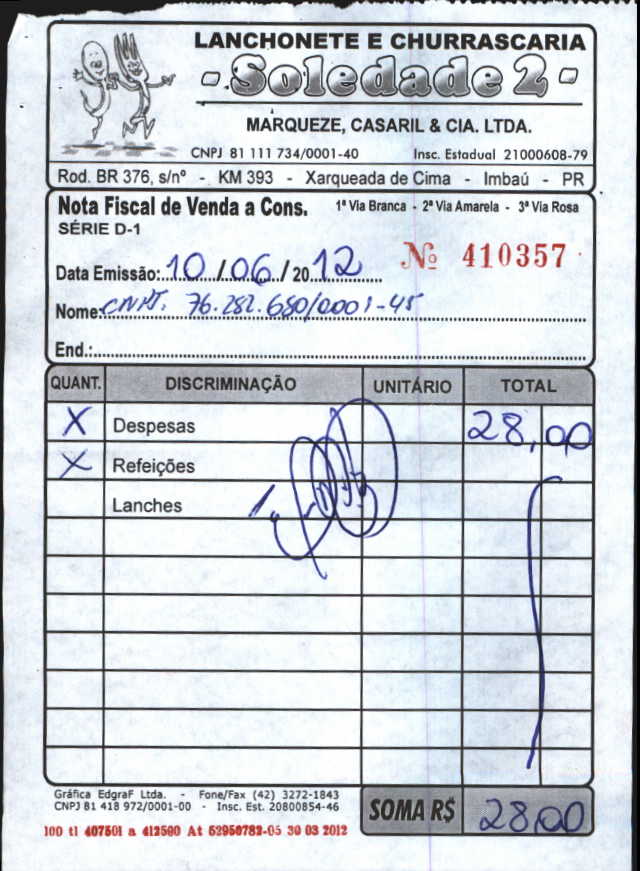 LANCHONETE E CHURRASCARIA
- Soledade 2 -
MARQUEZE, CASARIL & CIA. LTDA.
CNPJ 81 111 734/0001-40 Insc. Estadual 21000608-79
Rod. BR 376, s/nº - KM 393 - Xarqueada de Cima - Imbaú - PR
Nota Fiscal de Venda a Cons. 1ª Via Branca - 2ª Via Amarela - 3ª Via Rosa
SÉRIE D-1
Nº 410357
Data Emissão: 10/06/2012
Nome: CNPJ. 76.282.680/0001-45
End.:
QUANT. DISCRIMINAÇÃO UNITÁRIO TOTAL
X Despesas 28,00
X Refeições
Lanches
Gráfica EdgraF Ltda. - Fone/Fax (42) 3272-1843
CNPJ 81 418 972/0001-00 - Insc. Est. 20800854-46
SOMA R$ 28,00
100 tl 407501 a 412500 At 52950782-05 30 03 2012